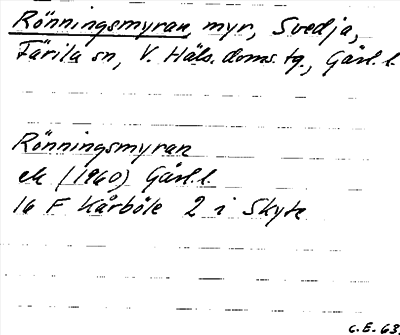 Rönningsmyran, myr, Svedja,
Färila sn, V. Häls. doms. tg., Gävl. l.
Rönningsmyran
ek (1960) Gävl. l.
16 F Kårböle 2 i Skyte
C.E. 63.